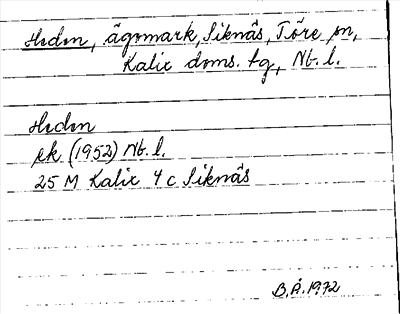 Heden, ägomark, Siknäs, Töre sn,
Kalix doms. tg, Nb. l.
Heden
ek (1952) Nb. l.
25 M Kalix 4 c Siknäs
B.Å. 1972